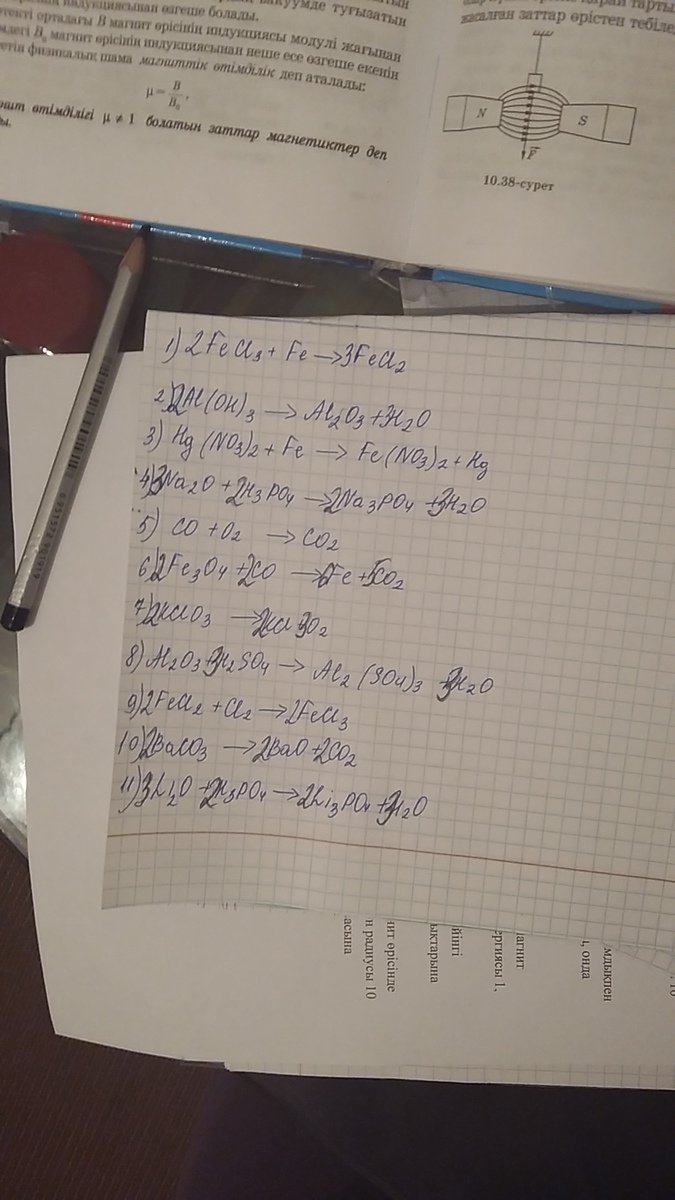 индукциясынан өзгеше болады.
вакуумде туғызатын
ортадағы B магнит өрісінің индукциясы модулі жағынан
B₀ магнит өрісінің индукциясынан неше есе өзгеше екенін
физикалық шама магниттік өтімділік деп аталады:
μ = B/B₀,
өтімділігі μ ≠ 1 болатын заттар магнетиктер деп
жасалған заттар өрістен
N
S
F
10.38-сурет
1) 2FeCl₃ + Fe → 3FeCl₂
2) 2Al(OH)₃ → Al₂O₃ + 3H₂O
3) Hg(NO₃)₂ + Fe → Fe(NO₃)₂ + Hg
4) 3Na₂O + 2H₃PO₄ → 2Na₃PO₄ + 3H₂O
5) CO + O₂ → CO₂
6) 2Fe₃O₄ + 2CO → 6Fe + 5CO₂
7) 2KClO₃ → 2KCl 3O₂
8) Al₂O₃ + 3H₂SO₄ → Al₂(SO₄)₃ + 3H₂O
9) 2FeCl₂ + Cl₂ → 2FeCl₃
10) 2BaCO₃ → 2BaO + 2CO₂
11) 3Li₂O + 2H₃PO₄ → 2Li₃PO₄ + 3H₂O
онда
ергиясы 1,
өрісінде
н радиусы 10